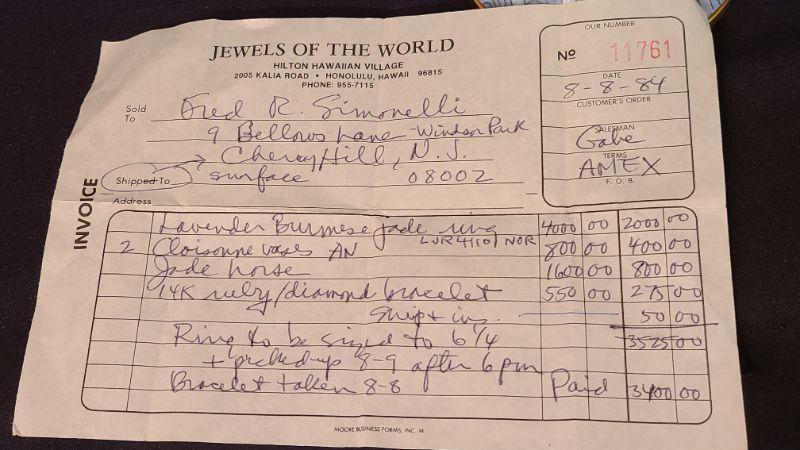 JEWELS OF THE WORLD
HILTON HAWAIIAN VILLAGE
2005 KALIA ROAD • HONOLULU, HAWAII 96815
PHONE: 955-7115
OUR NUMBER
No 11761
DATE
8-8-84
CUSTOMER'S ORDER
SALESMAN
Gabe
TERMS
AMEX
F. O. B.
Sold To Fred R. Simonelli
9 Bellows Lane - Windsor Park
Cherry Hill, N.J.
Shipped To surface 08002
Address
INVOICE
Lavender Burmese Jade ring 4000 00 2000 00
2 Cloisonne vases AN LJR4110 NOR 800 00 400 00
Jade horse 1600 00 800 00
14K ruby/diamond bracelet 550 00 275 00
Ship + ins. 50 00
Ring to be sized to 6 1/4 3525 00
+ picked-up 8-9 after 6 pm
Bracelet taken 8-8 Paid 3400 00
MOORE BUSINESS FORMS, INC. M